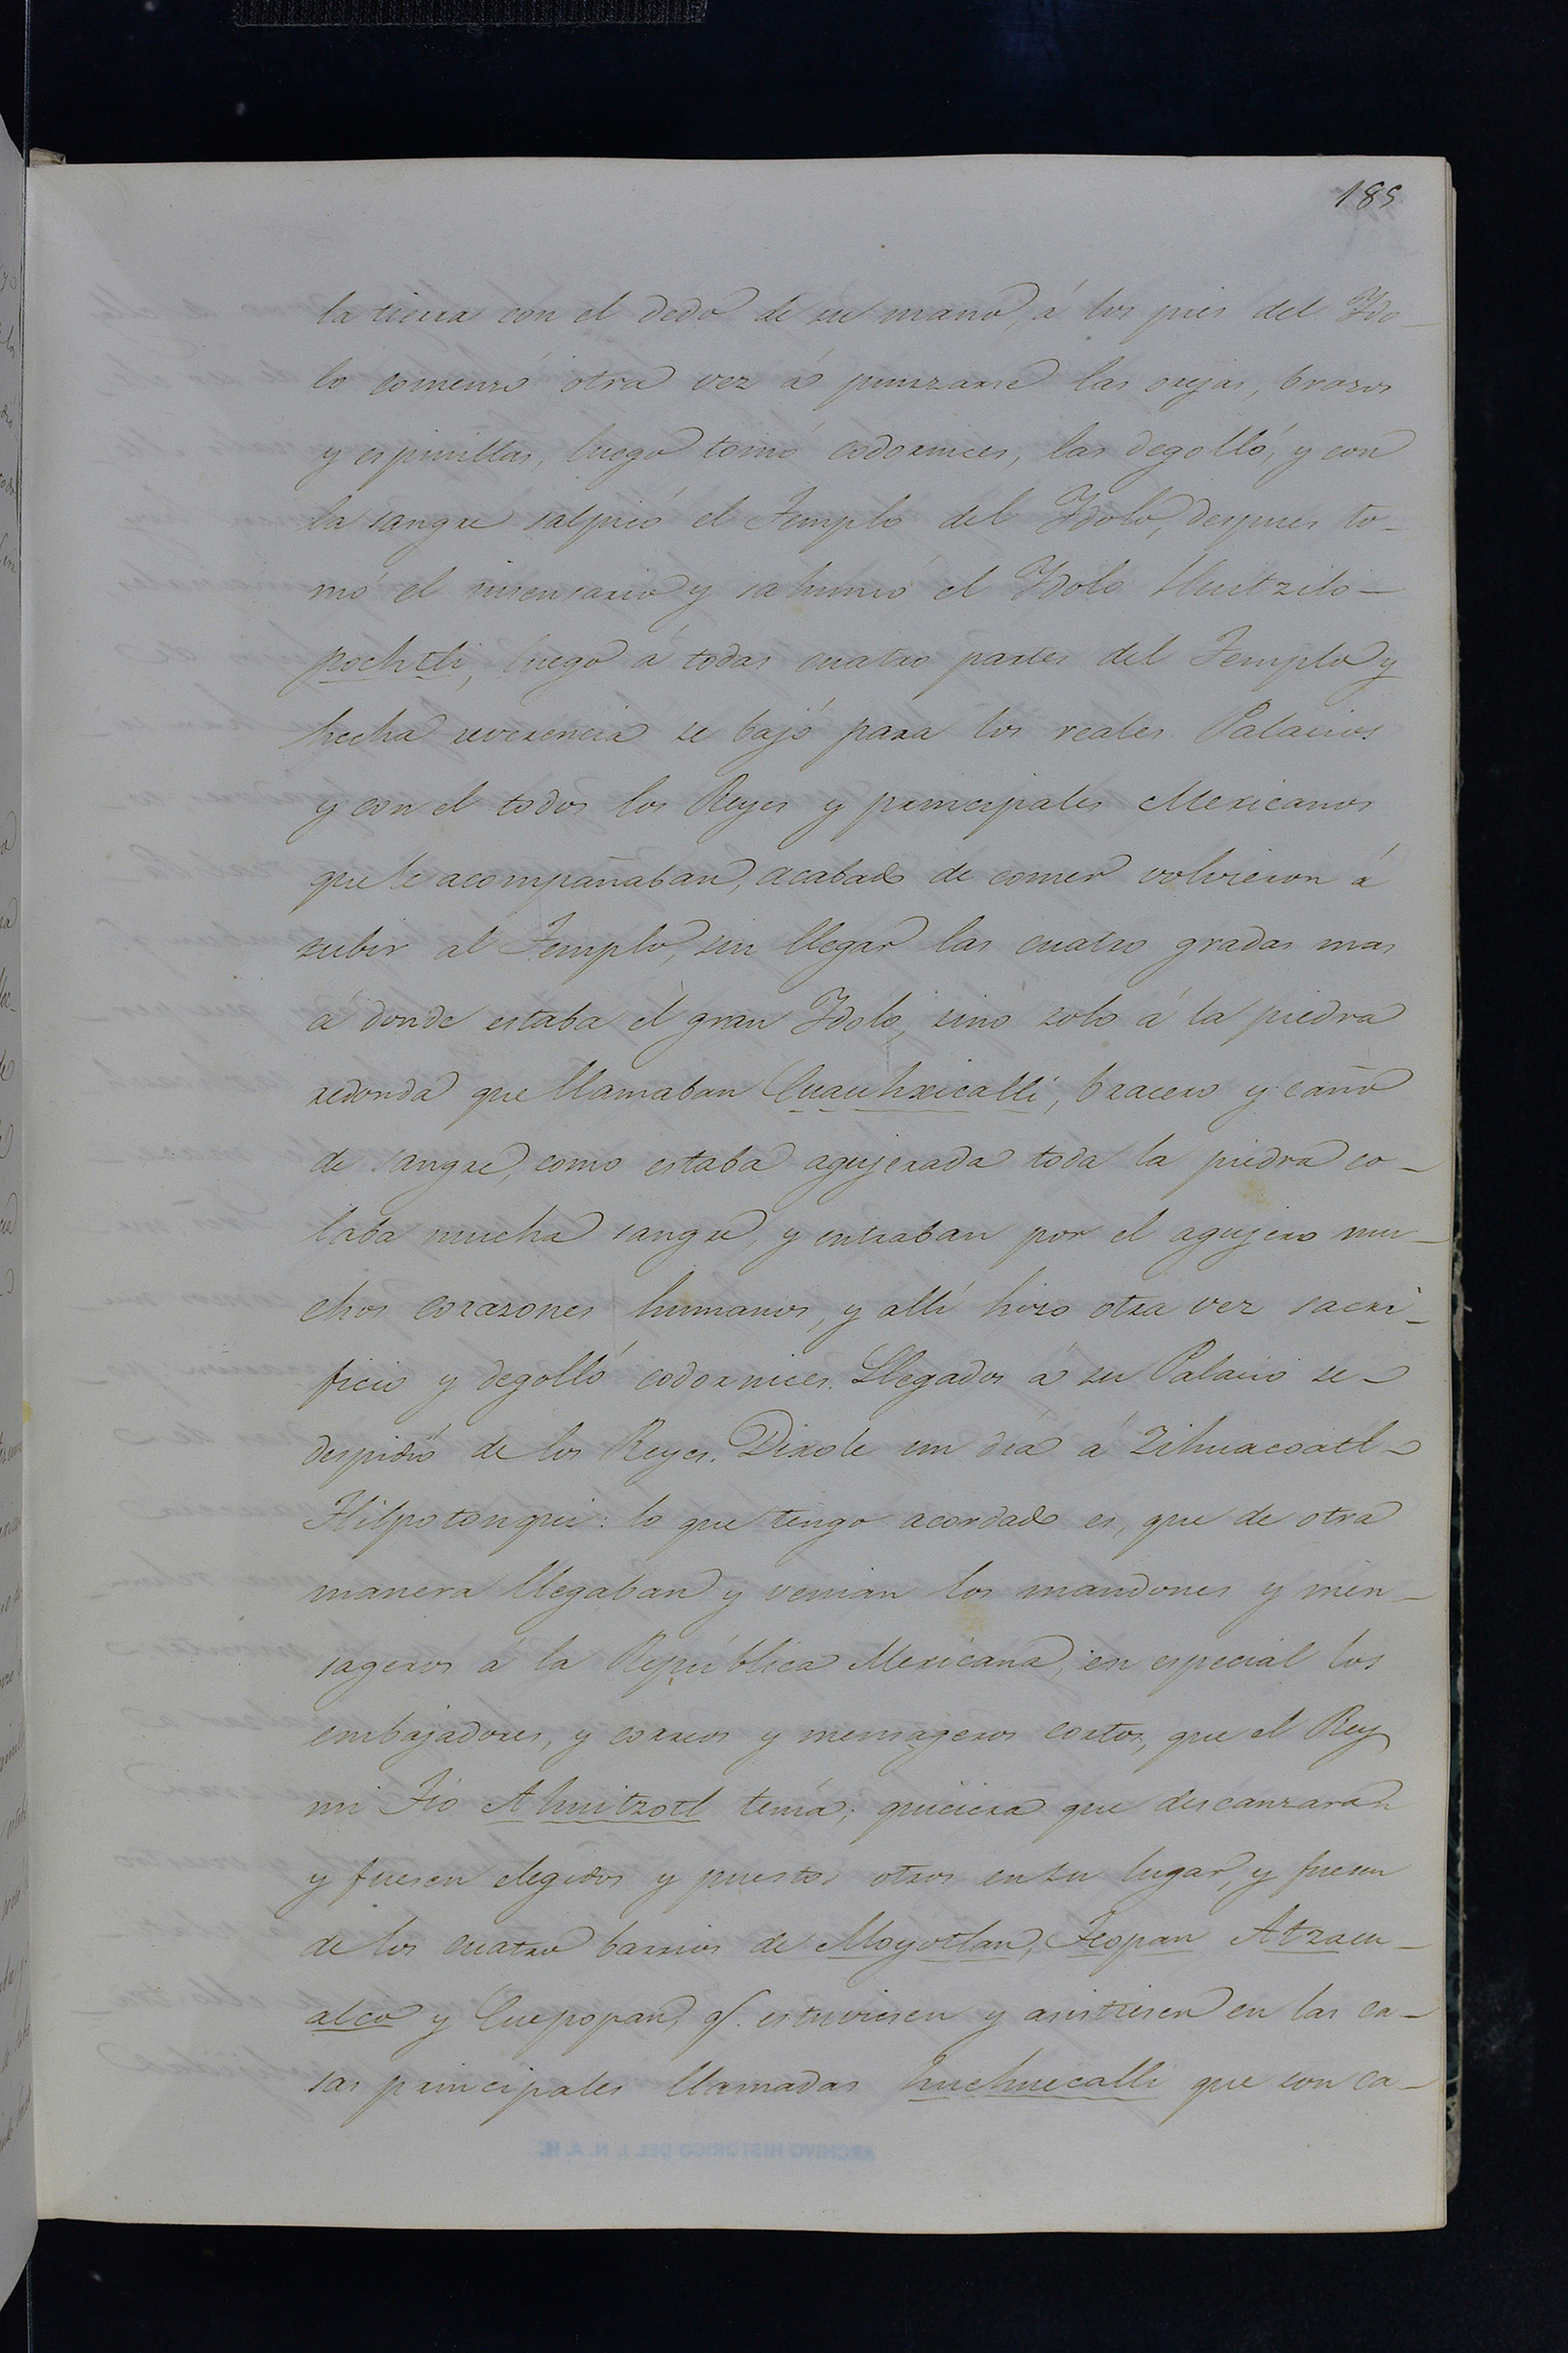 185
la tierra con el dedo de su mano, á los pies del Ydo-
lo comenzó otra vez á punzarse las orejas, brazos
y espinillas, luego tomó codornices, las degolló, y con
la sangre salpicó el Templo del Ydolo, despues to-
mó el insensario y sahumó el Ydolo Huitzilo-
pochtli, luego á todas cuatro partes del Templo y
hecha reverencia se bajó para los reales Palacios
y con el todos los Reyes y principales Mexicanos
que le acompañaban, acabado de comer volvieron á
subir al Templo, sin llegar las cuatro gradas mas
á donde estaba el gran Ydolo, sino solo á la piedra
redonda que llamaban Cuauhxicalli, bracero y caño
de sangre, como estaba agujerada toda la piedra co-
laba mucha sangre, y entraban por el agujero mu-
chos corazones humanos, y allí hizo otra vez sacri-
ficio y degolló codornices. Llegados á su Palacio se-
despidió de los Reyes. Dixole un día á Zihuacoatl-
Tlilpotonqui: lo que tengo acordado es, que de otra
manera llegaban y venian los mandones y men-
sageros á la República Mexicana, en especial los
embajadores, y correos y mensageros cortos, que el Rey
mi Tío Ahuitzotl tenía; quiciera que descanzaran
y fuesen elegidos y puestos otros en su lugar, y fuesen
de los cuatro barrios de Moyotlan, Teopan Atzacu-
alco y Cuepopan, q. estuviesen y asistiesen en las ca-
sas principales llamadas huehuecalli que son ca-
ARCHIVO HISTORICO DEL I. N. A. H.